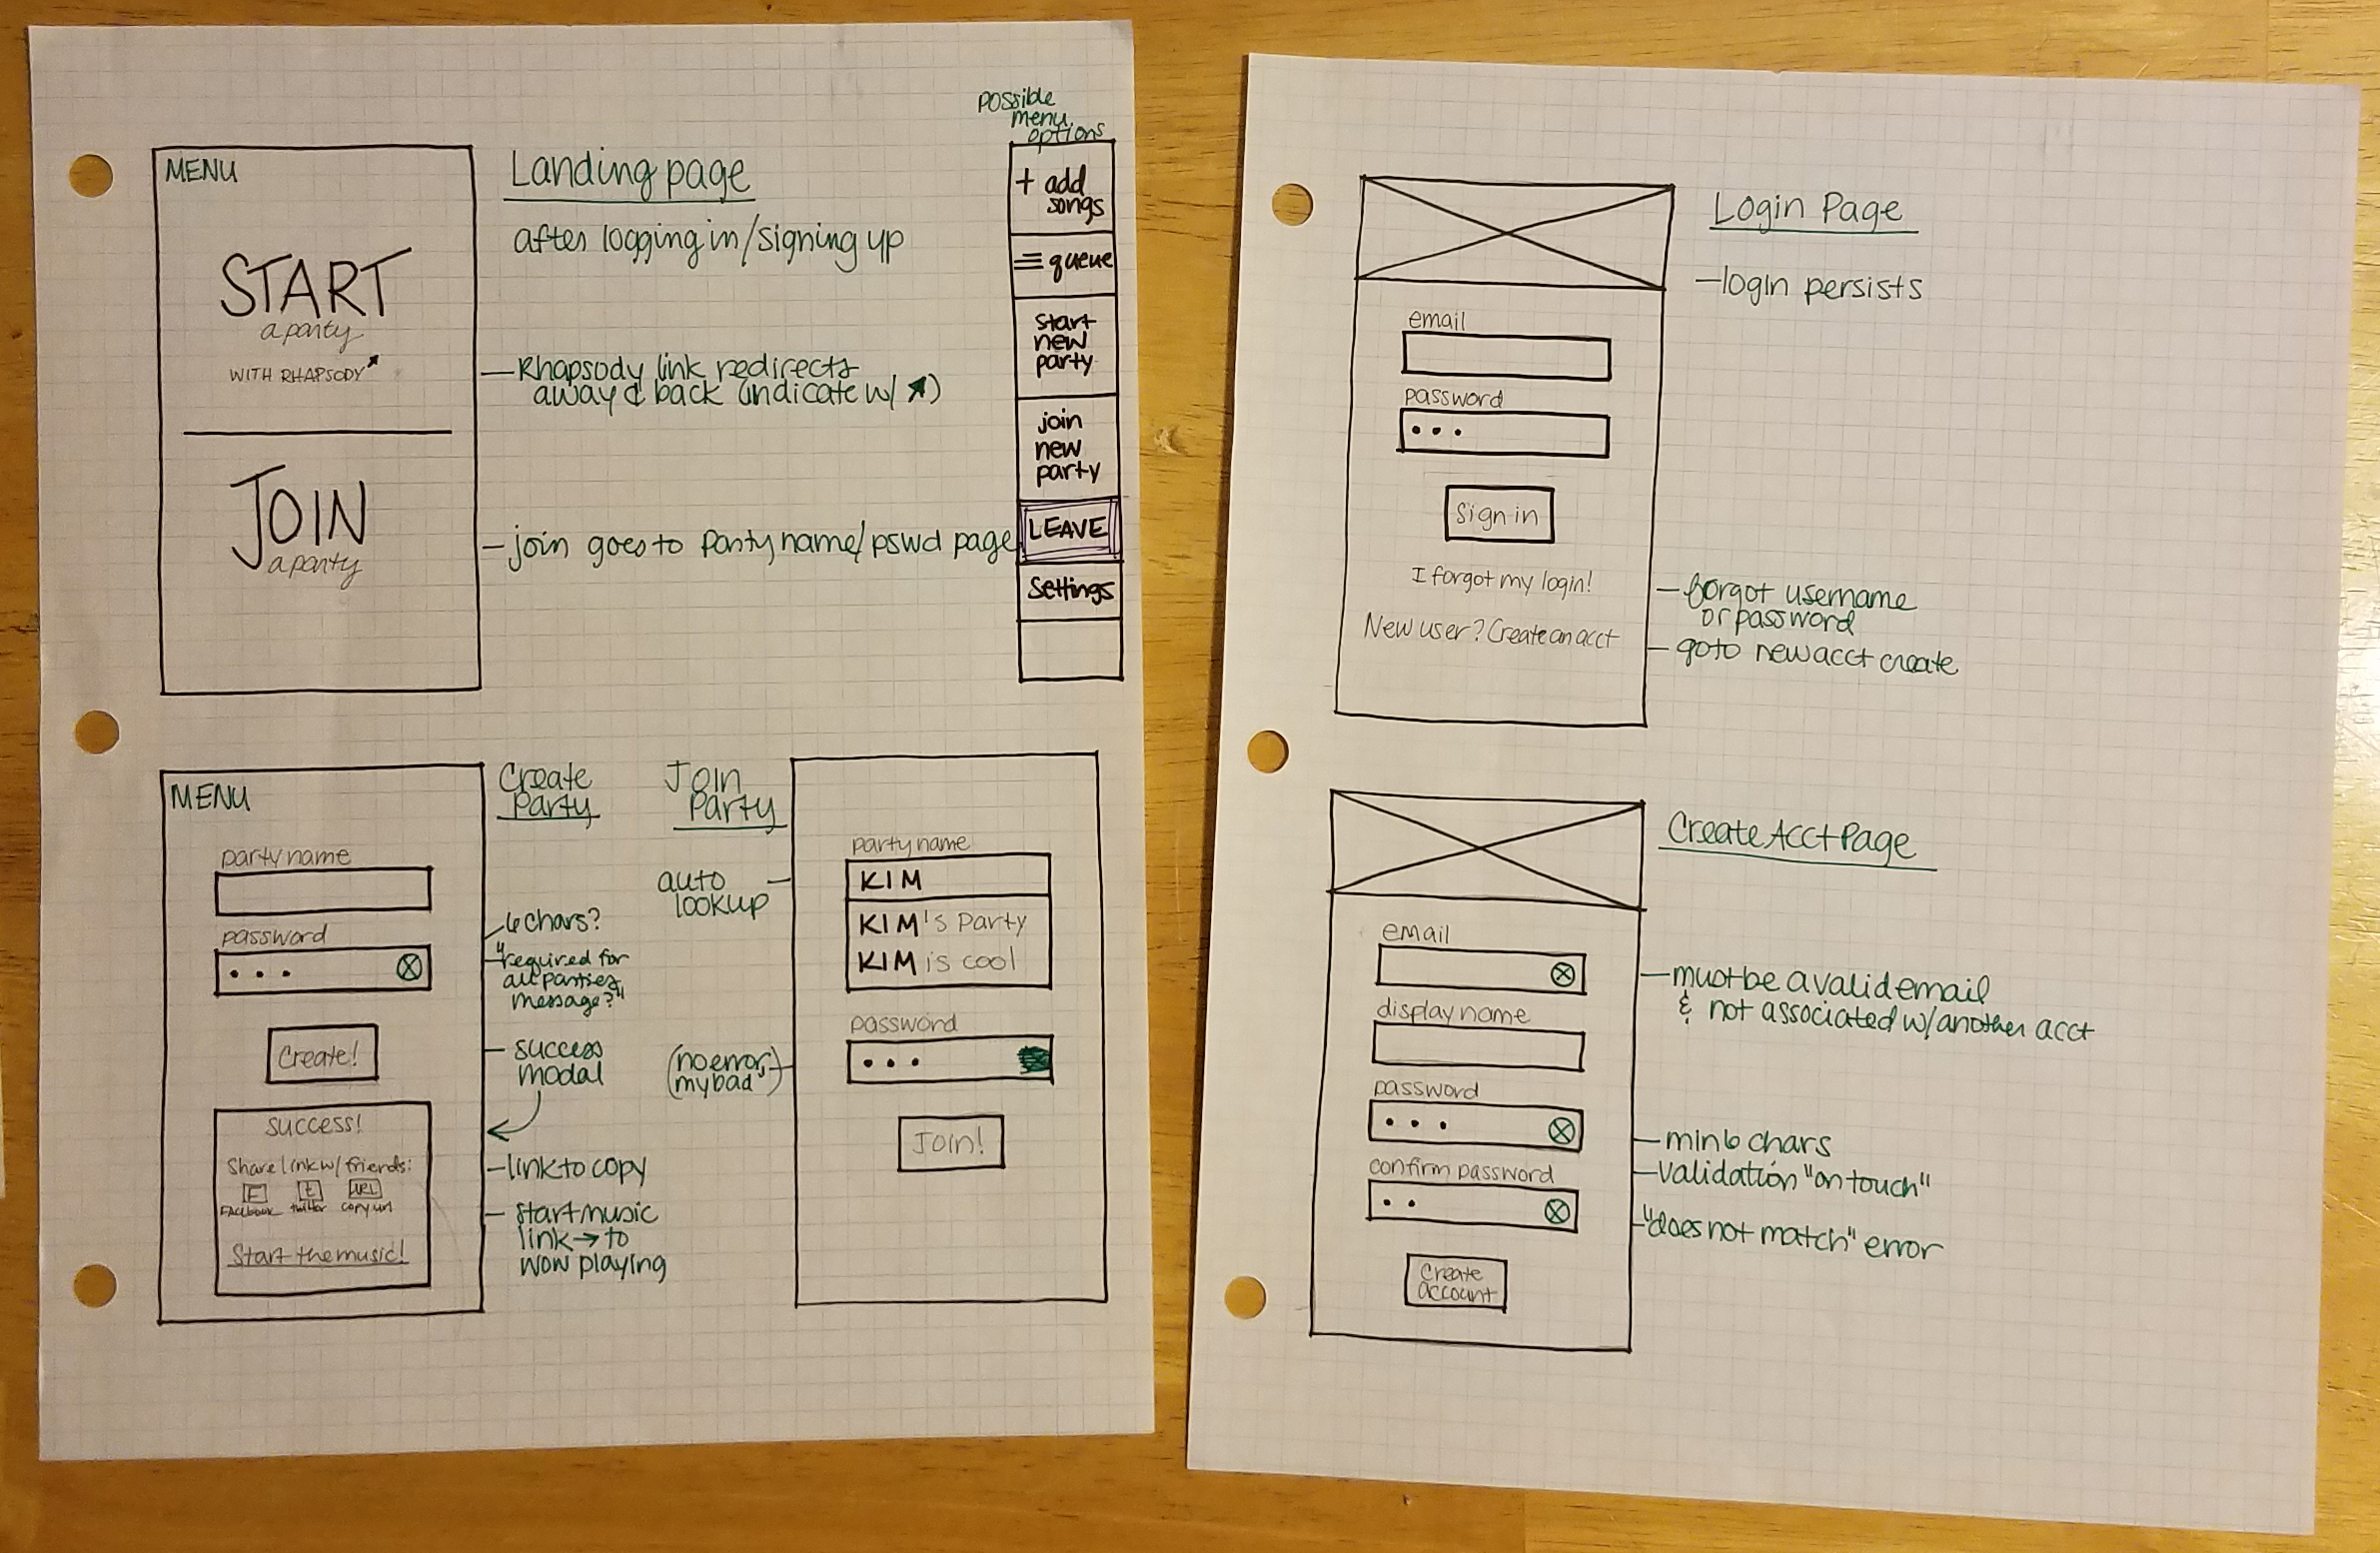 MENU
START
a party
WITH RHAPSODY
JOIN
a party
Landing page
after logging in/signing up
—Rhapsody link redirects
away & back (indicate w/ ↗)
—join goes to Party name/pswd page
possible
menu
options
+ add
songs
☰ queue
start
new
party
join
new
party
LEAVE
Settings
MENU
party name
password
• • •
Create!
success!
Share link w/ friends:
F
t
URL
Facebook
twitter
copy url
Start the music!
Create
Party
6 chars?
"required for
all parties
message?"
— success
modal
—link to copy
— start music
link → to
now playing
Join
Party
auto
lookup
(no error,
my bad)
party name
KIM
KIM's Party
KIM is cool
password
• • •
Join!
Login Page
—login persists
email
password
• • •
Sign in
I forgot my login!
New user? Create an acct
—forgot username
or password
— goto new acct create
Create Acct Page
email
display name
password
• • •
confirm password
• •
Create
account
—must be a valid email
& not associated w/another acct
—min 6 chars
—validation "on touch"
—"does not match" error